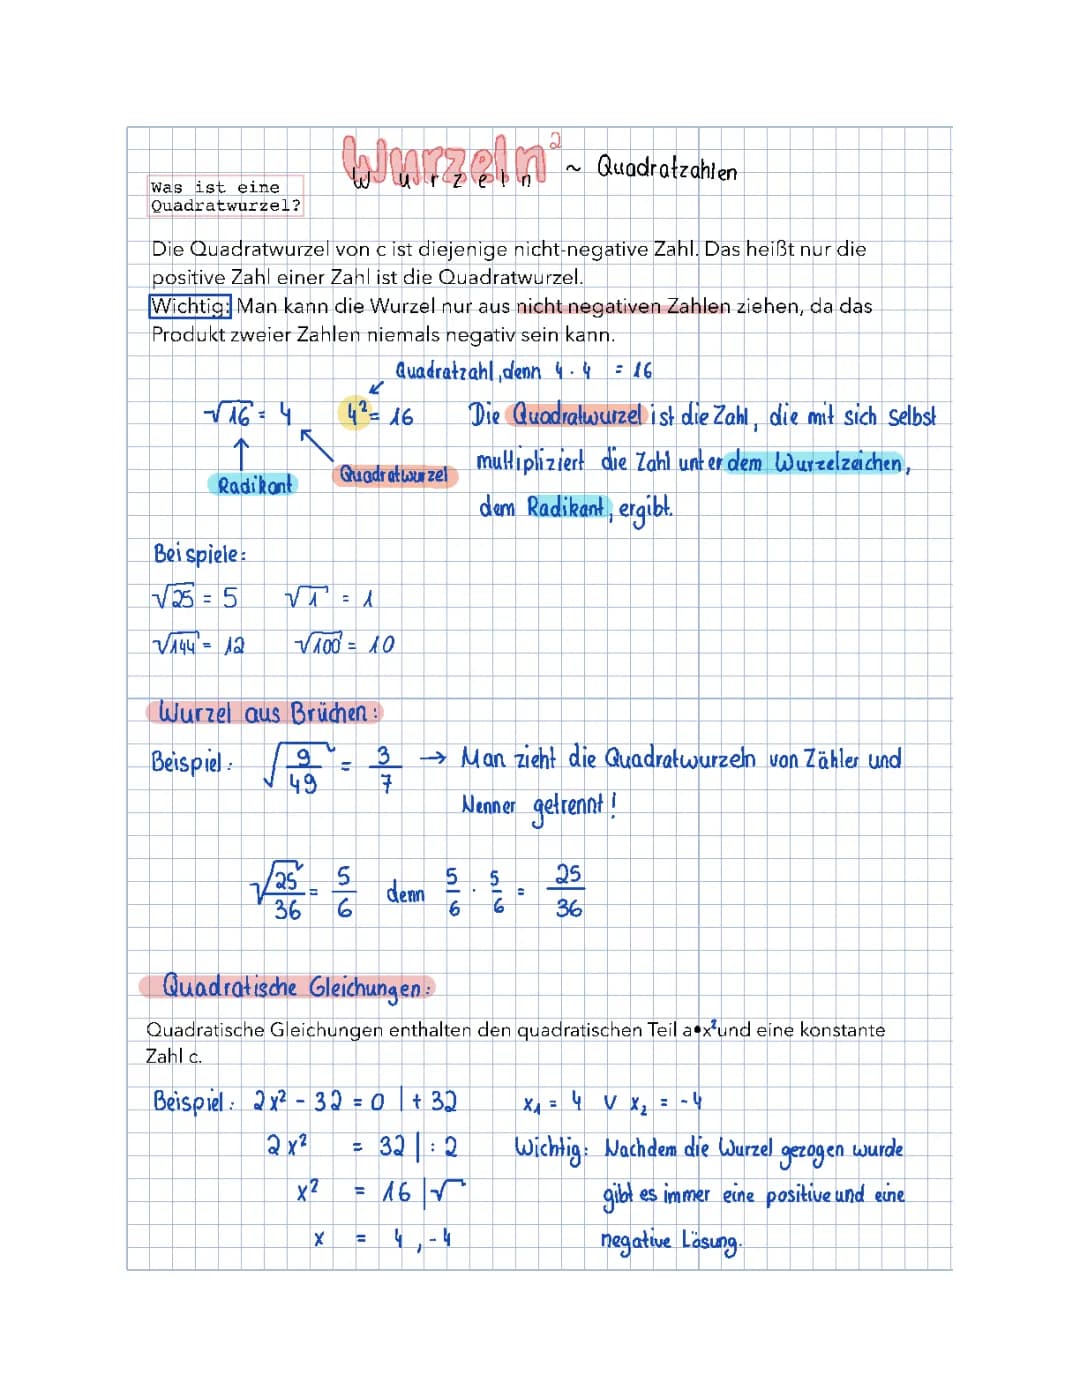 Wurzeln² ~ Quadratzahlen
Wurzeln
Was ist eine
Quadratwurzel?
Die Quadratwurzel von c ist diejenige nicht-negative Zahl. Das heißt nur die
positive Zahl einer Zahl ist die Quadratwurzel.
Wichtig: Man kann die Wurzel nur aus nicht negativen Zahlen ziehen, da das
Produkt zweier Zahlen niemals negativ sein kann.
Quadratzahl, denn 4 · 4 = 16
√16 = 4 4² = 16 Die Quadratwurzel ist die Zahl, die mit sich selbst
multipliziert die Zahl unter dem Wurzelzeichen,
Radikant Quadratwurzel
dem Radikant, ergibt.
Beispiele:
√25 = 5 √1 = 1
√144 = 12 √100 = 10
Wurzel aus Brüchen:
Beispiel: √(9/49) = 3/7 → Man zieht die Quadratwurzeln von Zähler und
Nenner getrennt!
√(25/36) = 5/6 denn 5/6 · 5/6 = 25/36
Quadratische Gleichungen:
Quadratische Gleichungen enthalten den quadratischen Teil a•x² und eine konstante
Zahl c.
Beispiel: 2x² - 32 = 0 | + 32 x₁ = 4 ∨ x₂ = -4
2x² = 32 | : 2 Wichtig: Nachdem die Wurzel gezogen wurde
x² = 16 | √ gibt es immer eine positive und eine
x = 4, -4 negative Lösung.